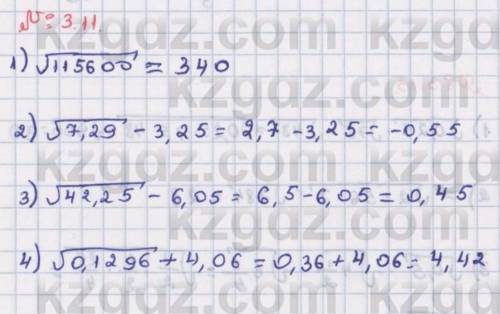 № 3.11.
1) √115600 = 340
2) √7,29 - 3,25 = 2,7 - 3,25 = -0,55
3) √42,25 - 6,05 = 6,5 - 6,05 = 0,45
4) √0,1296 + 4,06 = 0,36 + 4,06 = 4,42
kzgaz.com